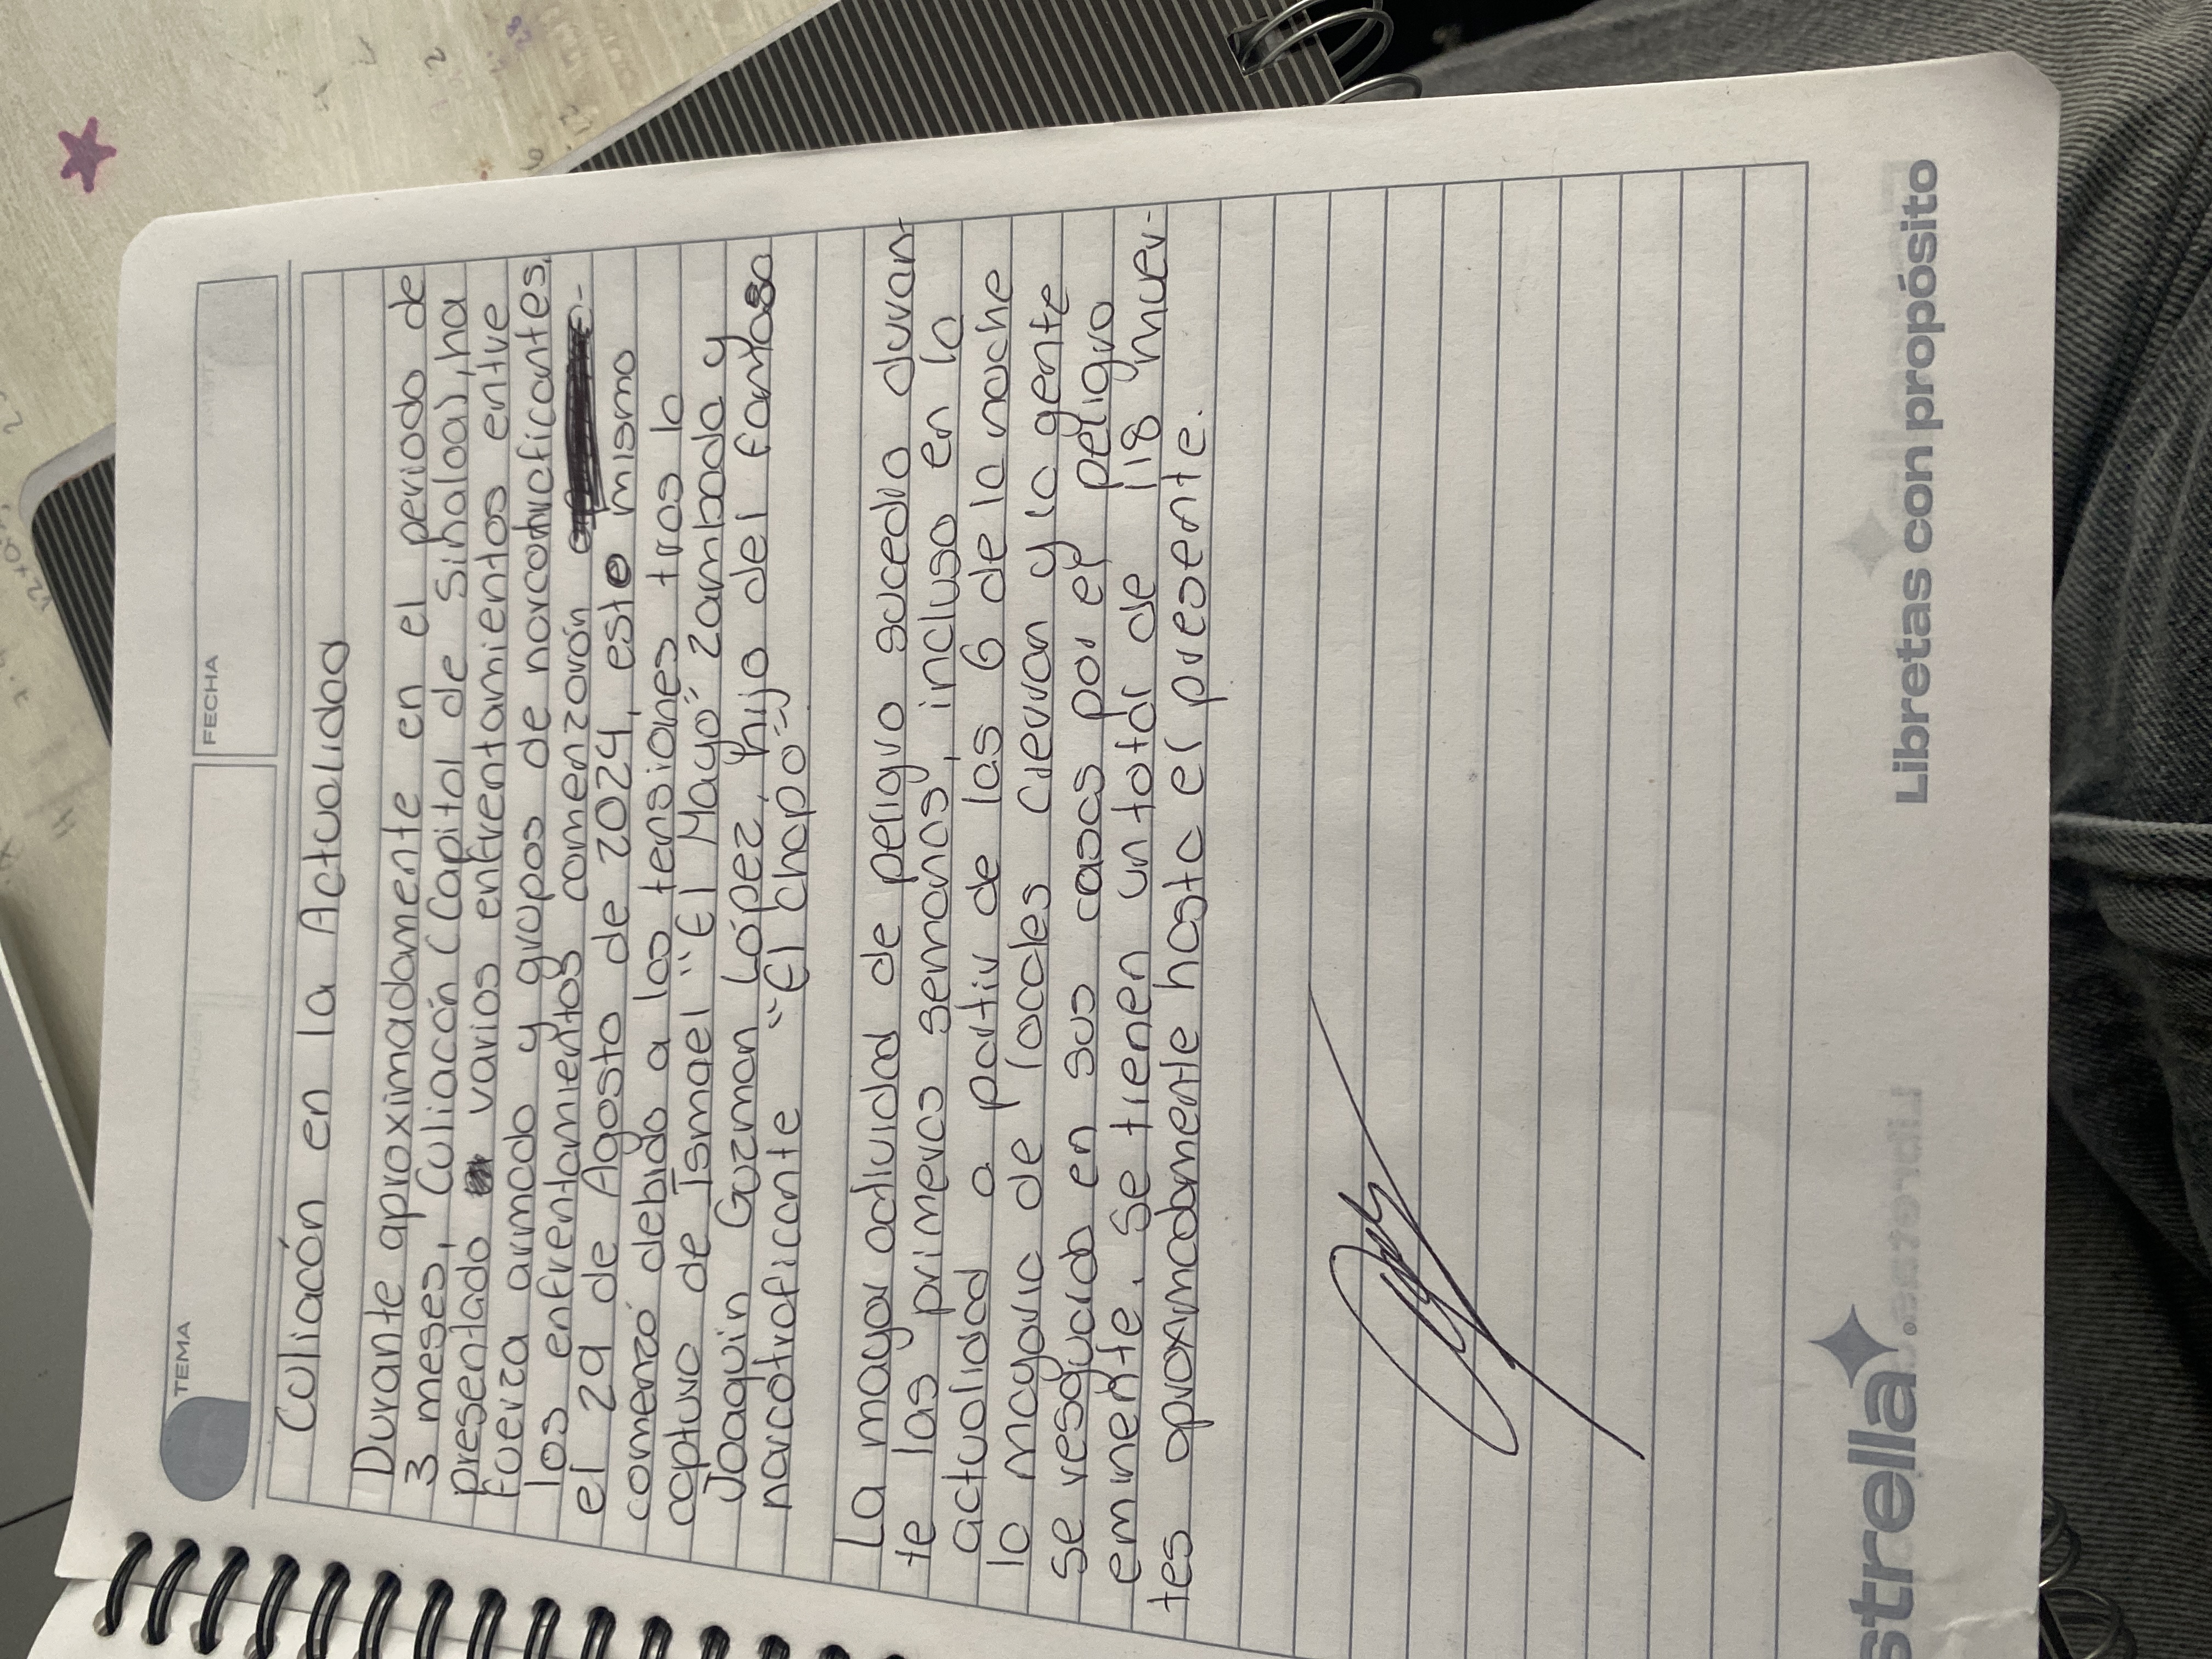 TEMA
FECHA
Culiacán en la Actualidad
Durante aproximadamente en el periodo de
3 meses, Culiacán (Capital de Sinaloa), ha
presentado varios enfrentamientos entre
fuerza armada y grupos de narcotraficantes.
los enfrentamientos comenzarón
el 29 de Agosto de 2024, este mismo
comenzó debido a las tensiones tras la
captura de Ismael "El Mayo" Zambada y
Joaquin Guzman López, hijo del famoso
narcotraficante "El chapo"
La mayor actividad de peligro sucedio duran-
te las primeras semanas, incluso en la
actualidad a partir de las 6 de la noche
la mayoria de locales cierran y la gente
se resguarda en sus casas por el peligro
eminente. Se tienen un total de 118 muer-
tes aproximadamente hasta el presente.
strella
Libretas con propósito